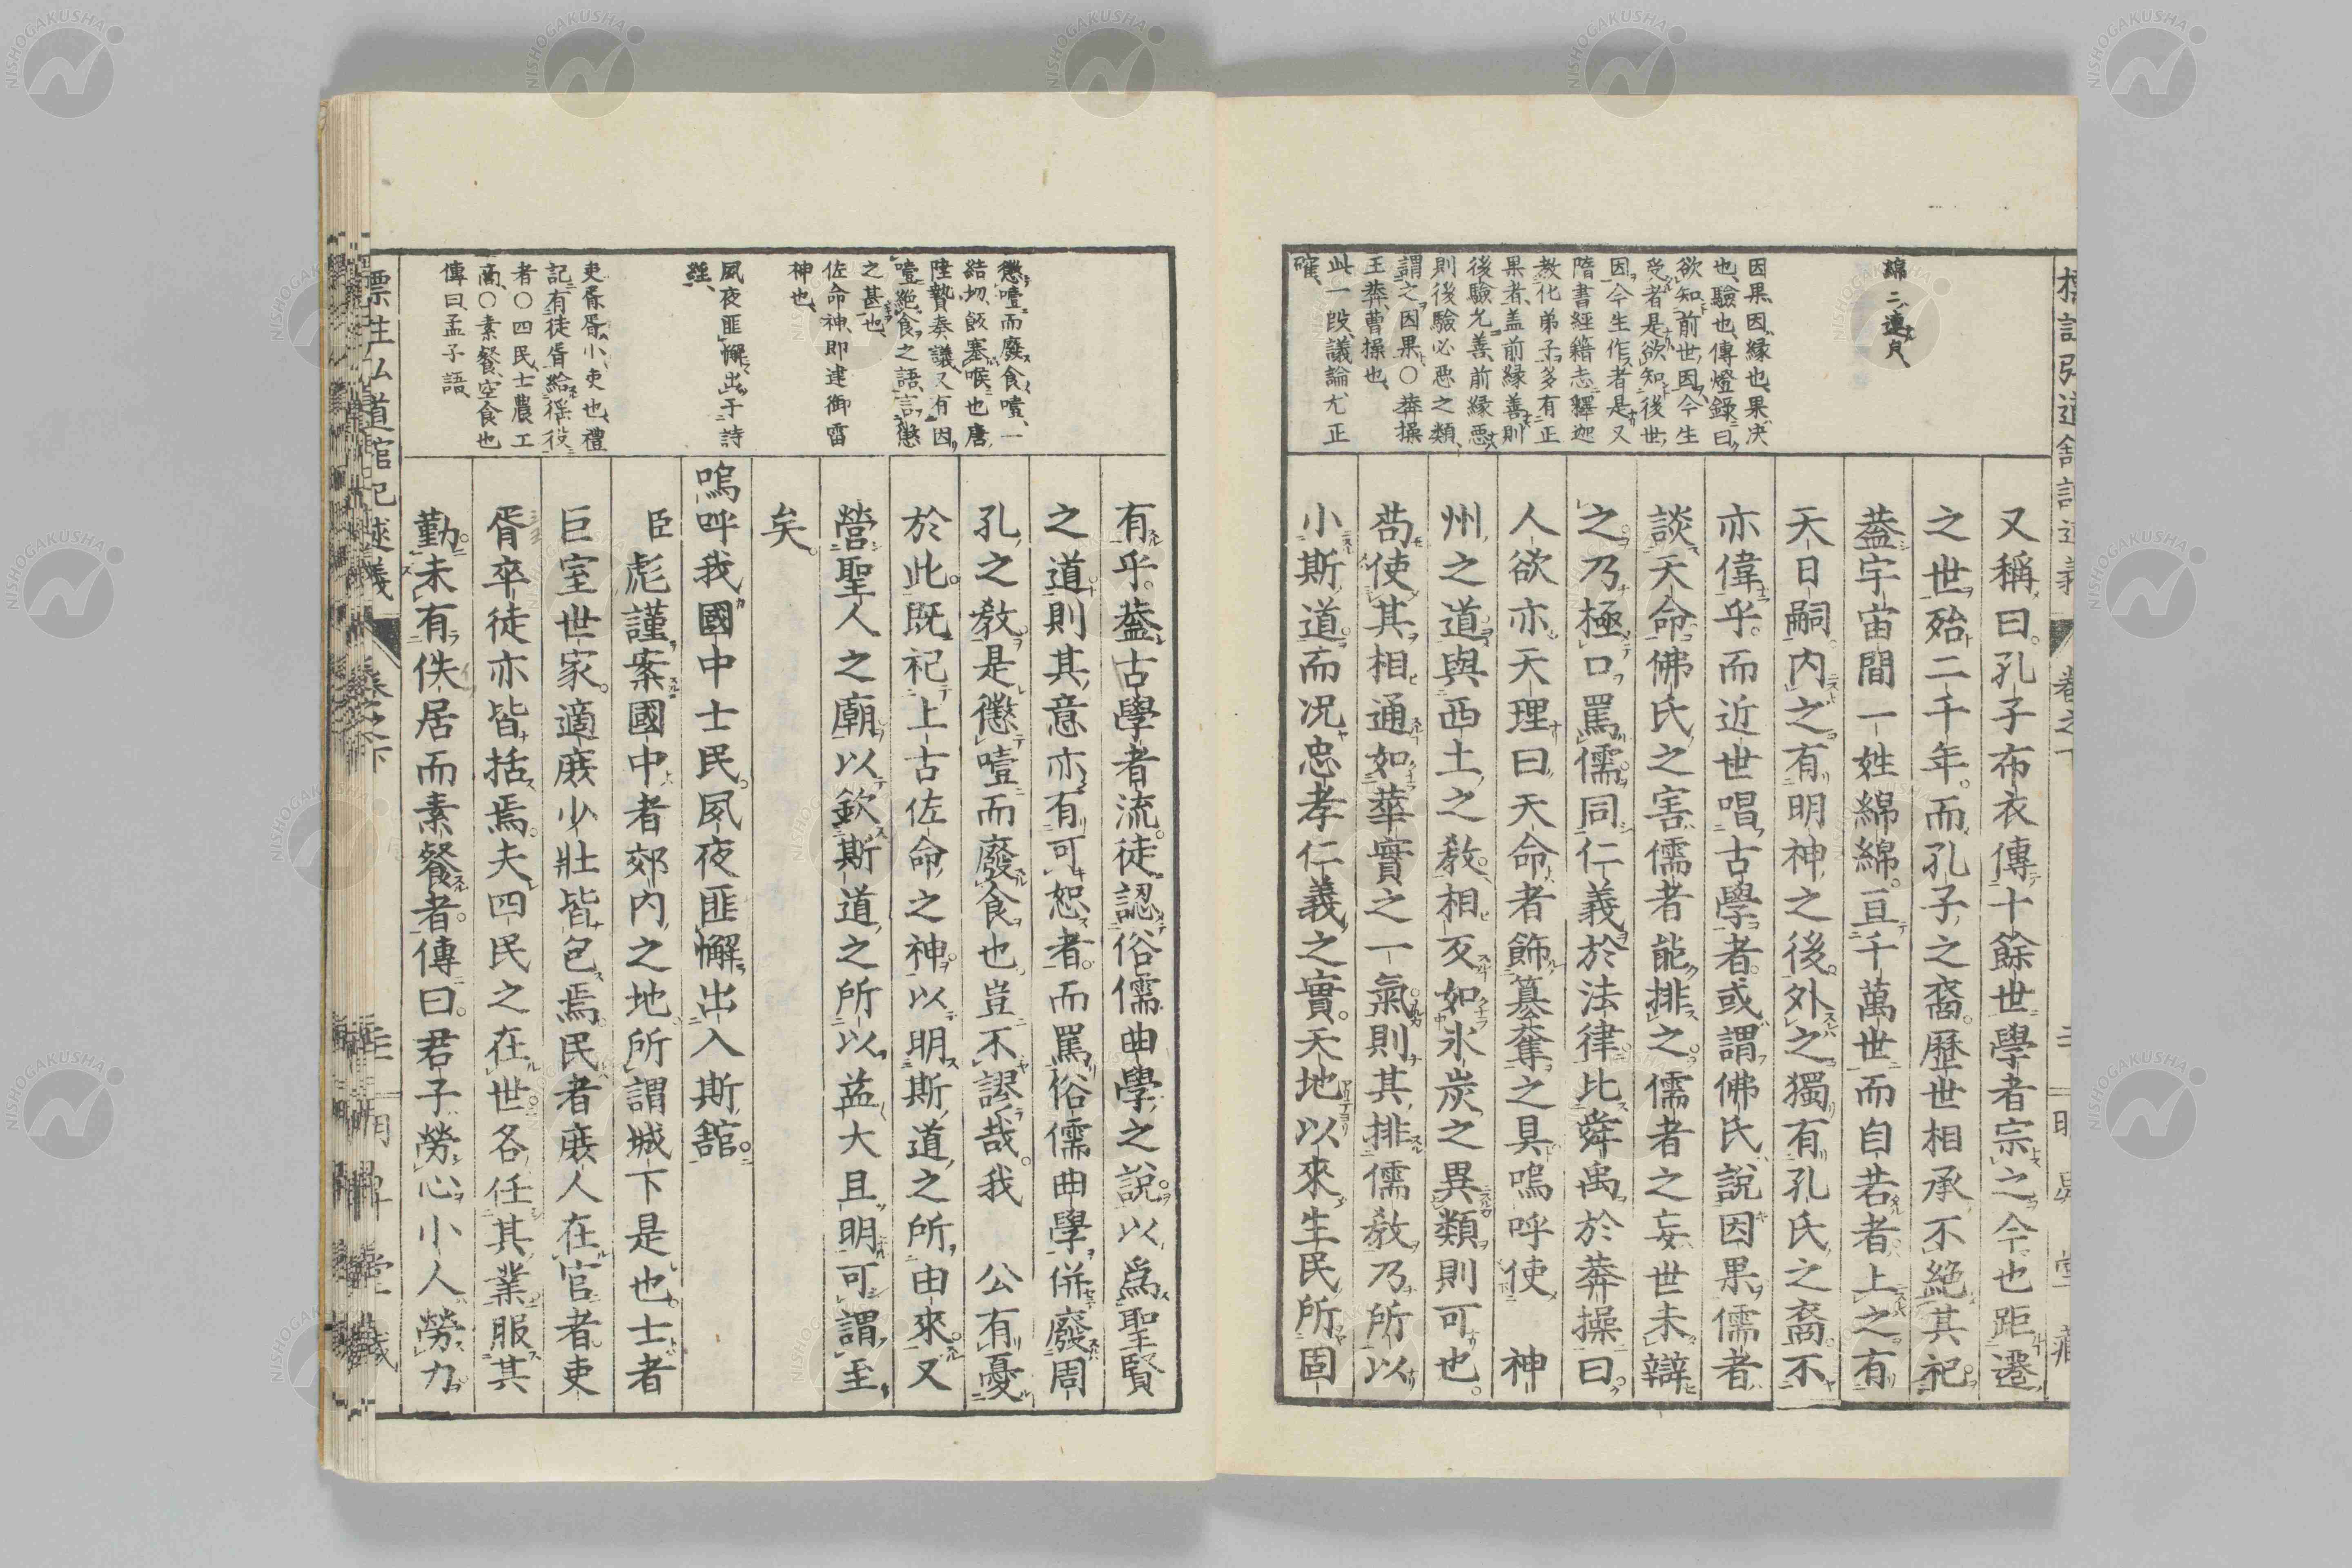 綿二連凡
因果、因縁也、果、决
也、驗也、傳燈錄曰、
欲知前世因今生
受者是、欲知後世
因今生作者是、又
隋書經籍志、釋迦
教化弟子、多有正
果者、盖前縁善則
後驗尤善、前縁惡
則後驗必惡之類、
謂之因果、○莽操
王莽、曹操也、
此一段、議論尤正
確、
又稱曰。孔子布衣傳十餘世。學者宗之。今也距遷
之世。殆二千年。而孔子之裔。歷世相承。不絶其祀。
葢宇宙間一姓綿綿。亘千萬世。而自若者。上之有
天日嗣。内之有明神之後。外之獨有孔氏之裔。不
亦偉乎。而近世唱古學者。或謂佛氏說因果。儒者
談天命。佛氏之害。儒者能排之。儒者之妄。世未辯
之。乃極口罵儒。同仁義於法律。比舜禹於莽操。曰
人欲亦天理。曰天命者飾簒奪之具。嗚呼使 神
州之道與西土之敎相反。如氷炭之異類。則可也。
苟使其相通。如華實之一氣。則其排儒敎。乃所以
小斯道。而况忠孝仁義之實。天地以來。生民所固
有乎。葢古學者流。徒認俗儒曲學之說。以爲聖賢
之道。則其意亦有可恕者。而罵俗儒曲學。併廢周
孔之敎。是懲噎而廢食也。豈不謬哉。我 公有憂
於此。既祀上古佐命之神。以明斯道之所由來。又
營聖人之廟。以欽斯道之所以益大且明。可謂至
矣。
嗚呼我國中士民。夙夜匪懈。出入斯館。
臣彪謹案。國中者。郊内之地。所謂城下是也。士者
巨室世家。適庶少壯皆包焉。民者庶人在官者。吏
胥卒徒亦皆括焉。夫四民之在世。各任其業。服其
勤。未有佚居而素餐者。傳曰。君子勞心。小人勞力。
懲噎而廢食、噎、一
結切、飯塞喉也、唐
陸贄奏議、又有因
噎絶食之語、言懲
之甚也、
佐命神、即建御雷
神也、
夙夜匪懈、出于詩
經、
吏胥、胥、小吏也、禮
記、有徒胥給徭役
者、○四民、士農工
商、○素餐、空食也
傳曰、孟子語、
標注弘道館記述義 卷之下